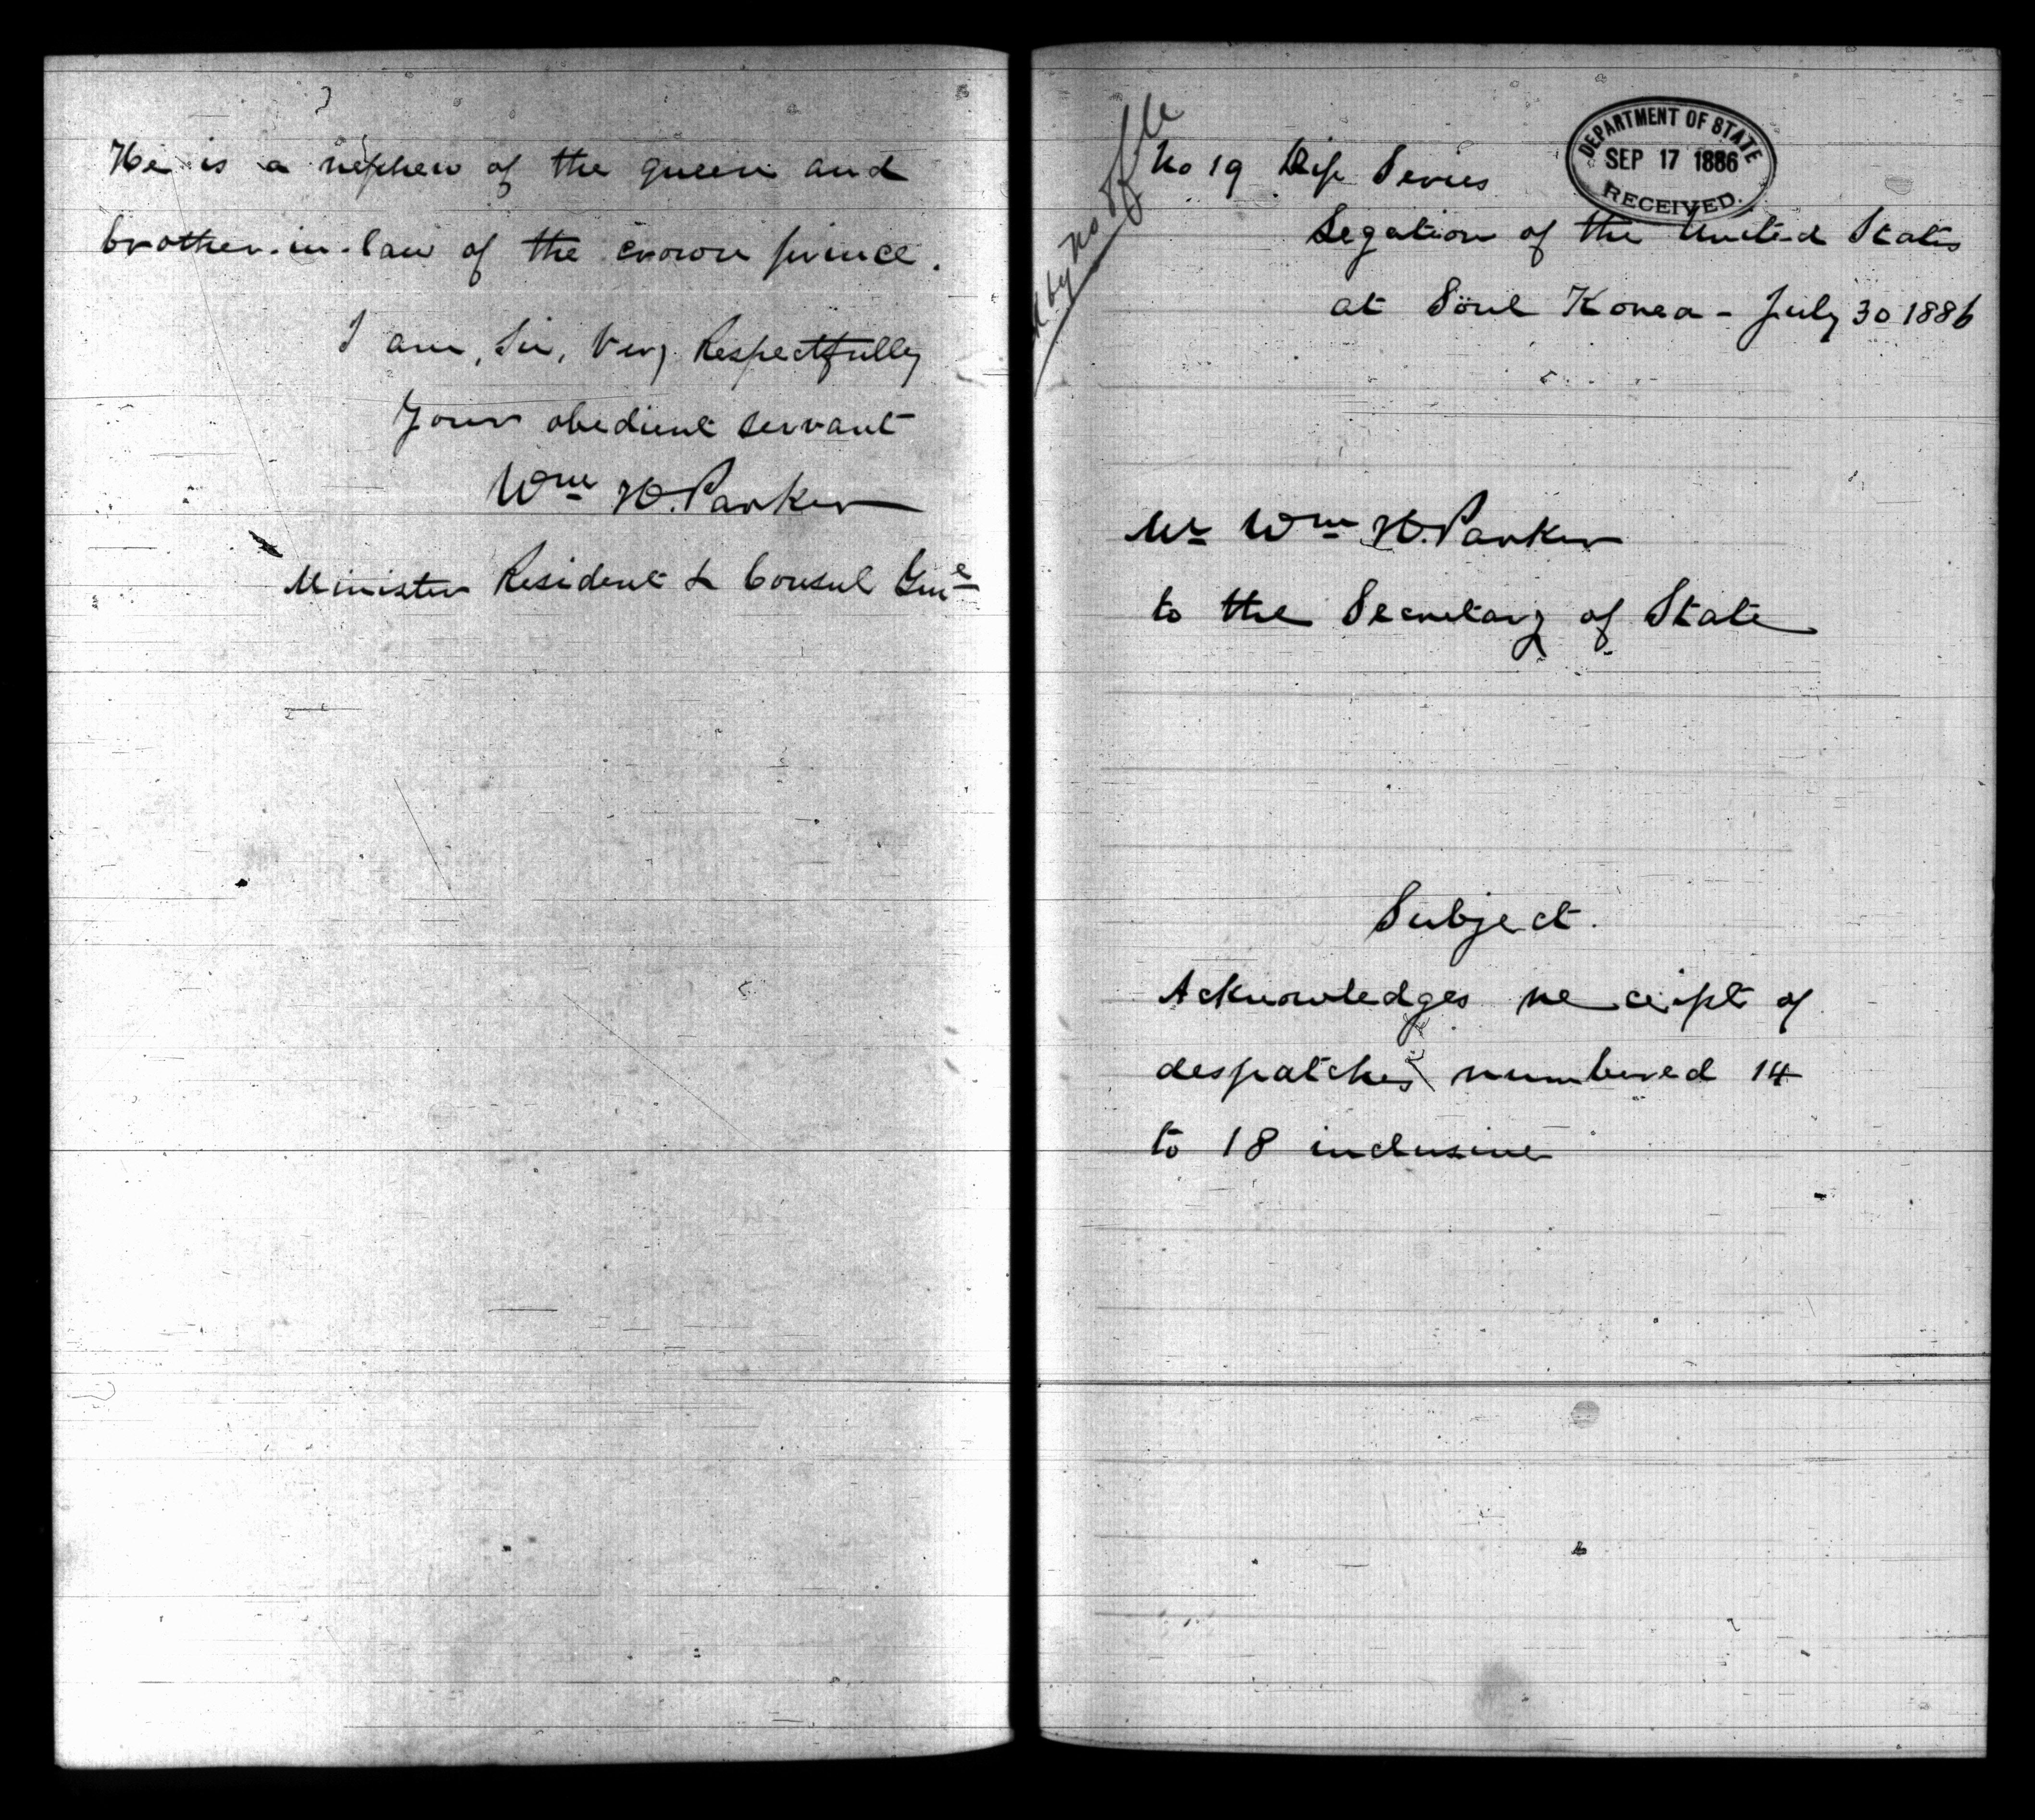 He is a nephew of the queen and
brother-in-law of the crown prince.
I am, Sir, Very Respectfully
Your obedient servant
Wm H. Parker
Minister Resident & Consul Genl
No 19 Dip Series
DEPARTMENT OF STATE
SEP 17 1886
RECEIVED.
Legation of the United States
at Söul Korea - July 30 1886
by no
Mr Wm H. Parker
to the Secretary of State
Subject.
Acknowledges receipt of
despatches numbered 14
to 18 inclusive